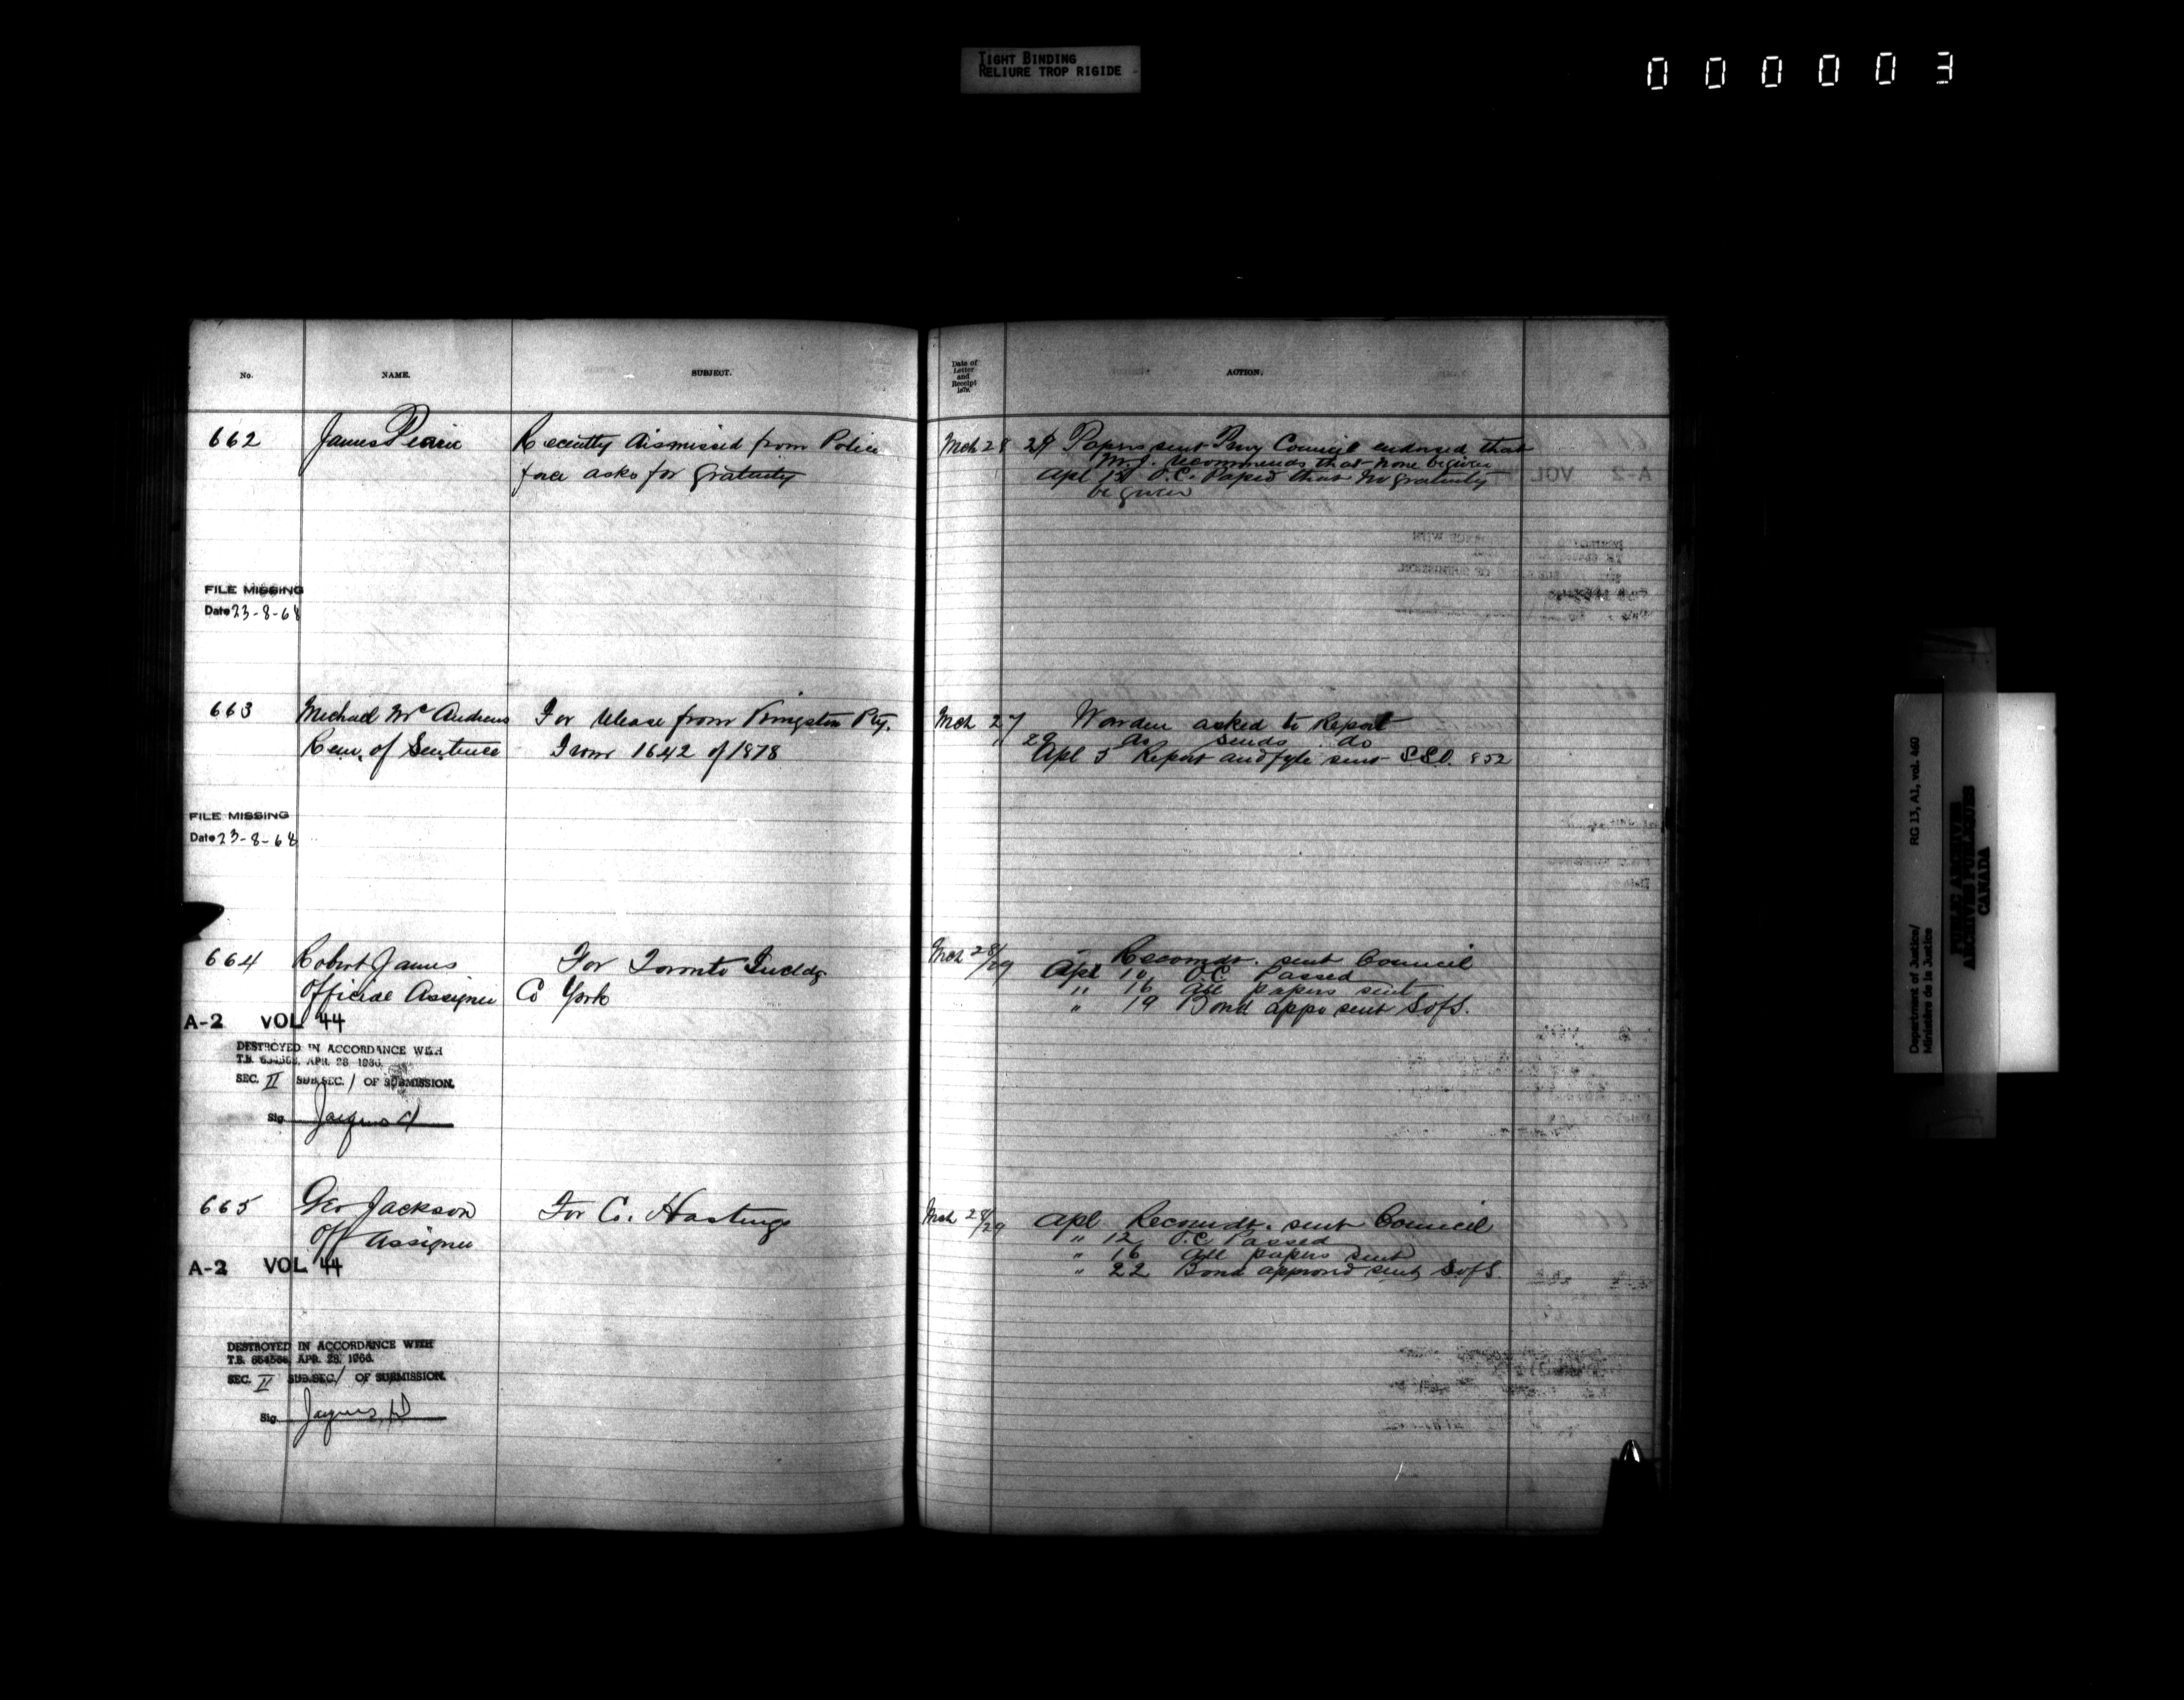 TIGHT BINDING
RELIURE TROP RIGIDE
000003
No.
NAME.
SUBJECT.
Date of
Letter
and
Receipt
1879.
ACTION.
662
James
Recently dismissed from Police
force asks for gratuity
Mch 28
29 Papers sent Privy Council endorsed that
M.J. recommends that none be given
Apl 15 O.C. Papsd that no gratuity
be given
FILE MISSING
Date 23-8-68
663
Michael McAndrews
Rem. of Sentence
For release from Kingston Pty.
From 1642 of 1878
Mch 27
Warden asked to Report
29 do sends do
Apl 5 Report and fyle sent S.S.O. 852
FILE MISSING
Date 23-8-68
664
Robert James
Official Assignee
For Toronto Includg
Co York
Mch 28/29
Recomdt. sent Council
Apl 10 O.C. Passed
" 16 All papers sent
" 19 Bond appd sent S of S.
A-2 VOL 44
DESTROYED IN ACCORDANCE WITH
T.B. APR. 28 1966.
SEC. II SUB.SEC. 1 OF SUBMISSION.
Sig.
665
Geo Jackson
Off Assignee
For Co. Hastings
Mch 28/29
Apl Recomdt. sent Council
" 12 O.C. Passed
" 16 All papers sent
" 22 Bond approvd sent S of S.
A-2 VOL 44
DESTROYED IN ACCORDANCE WITH
T.B. APR. 28, 1966.
SEC. II SUB.SEC. 1 OF SUBMISSION.
Sig.
Department of Justice/ RG 13, A1, vol. 460
Ministère de la Justice
PUBLIC ARCHIVES
ARCHIVES PUBLIQUES
CANADA